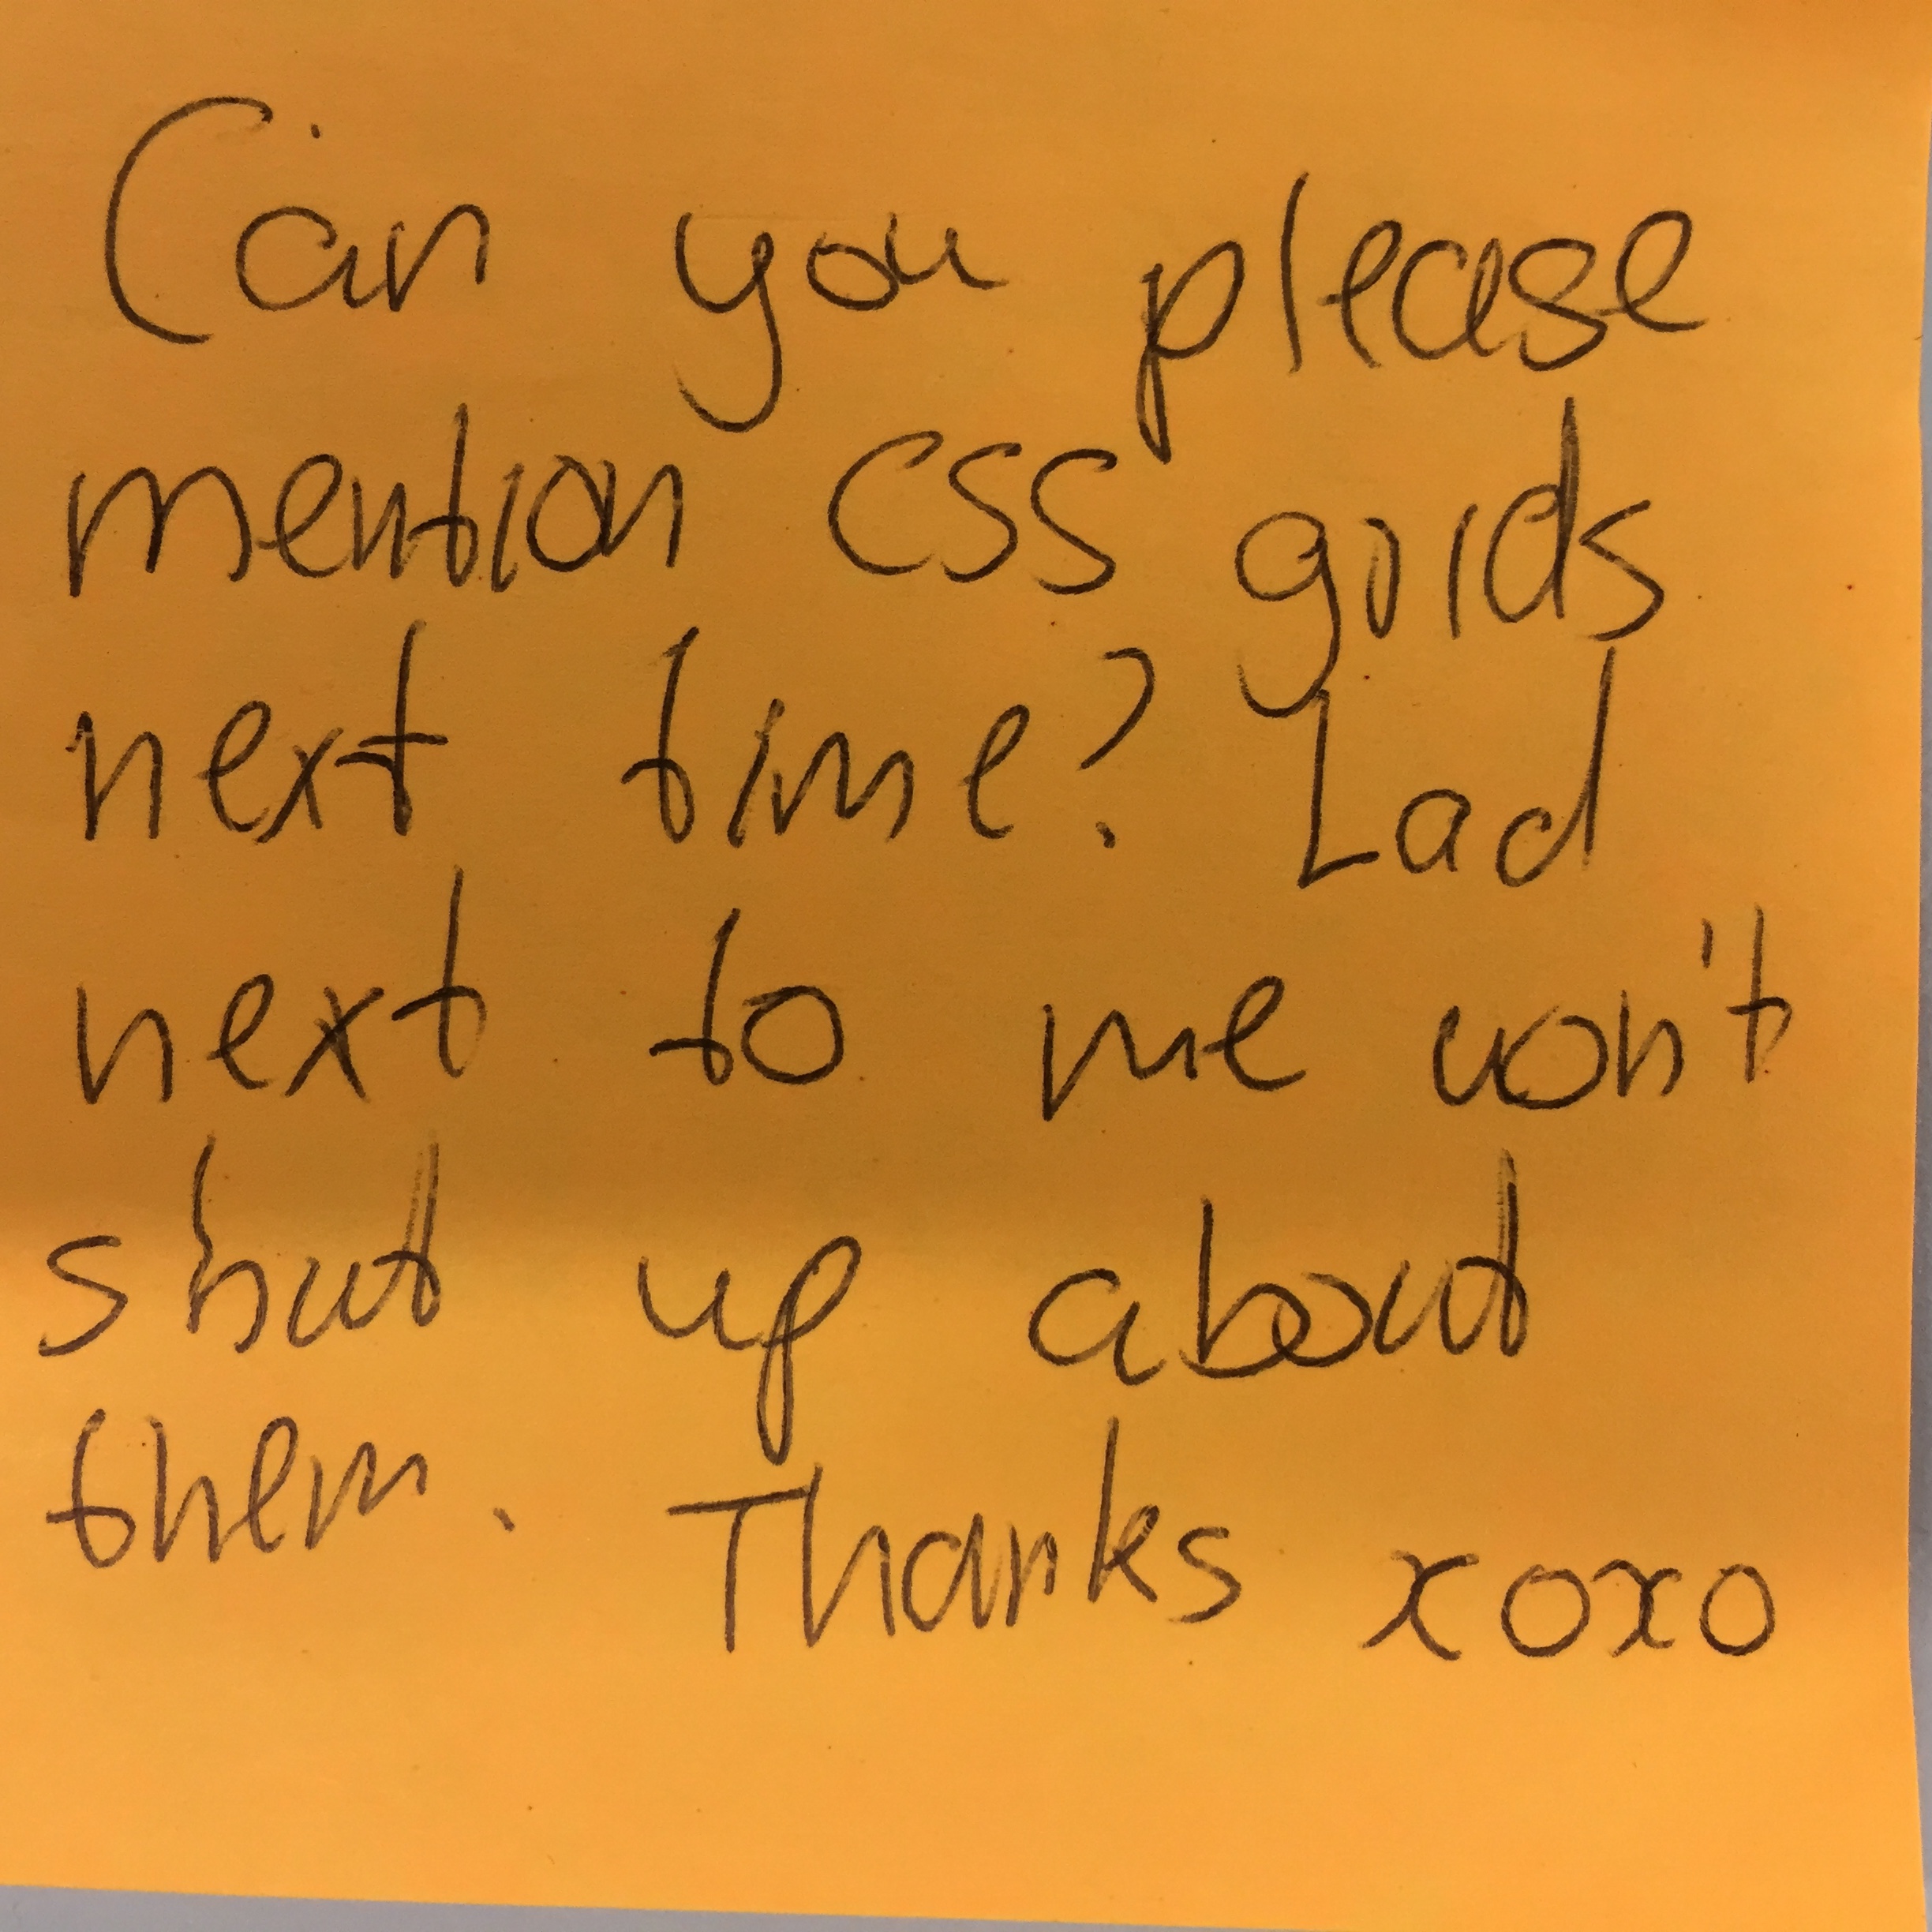 Can you please
mention CSS goids
next time? Lad
next to me won't
shut up about
them. Thanks xoxo